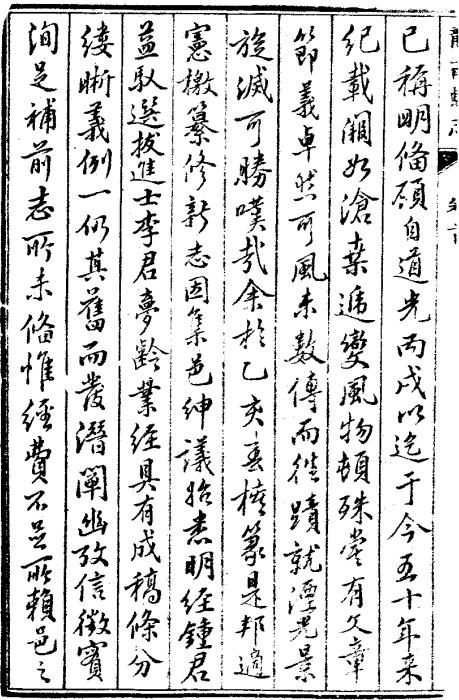 龍南縣志 卷首
已稱明備顧自道光丙戌以迄于今五十年来
紀載闕如滄桒遞變風物頓殊嘗有文章
節義卓然可風未數傳而往蹟就湮光景
旋滅可勝嘆哉余於乙亥春權篆是邦適
憲檄纂修新志因集邑紳議始悉明經鍾君
益馭選拔進士李君夢齡業經具有成稿條分
縷晰義例一仍其舊而發潛闡幽攷信徵實
洵足補前志所未備惟經費不足所賴邑之